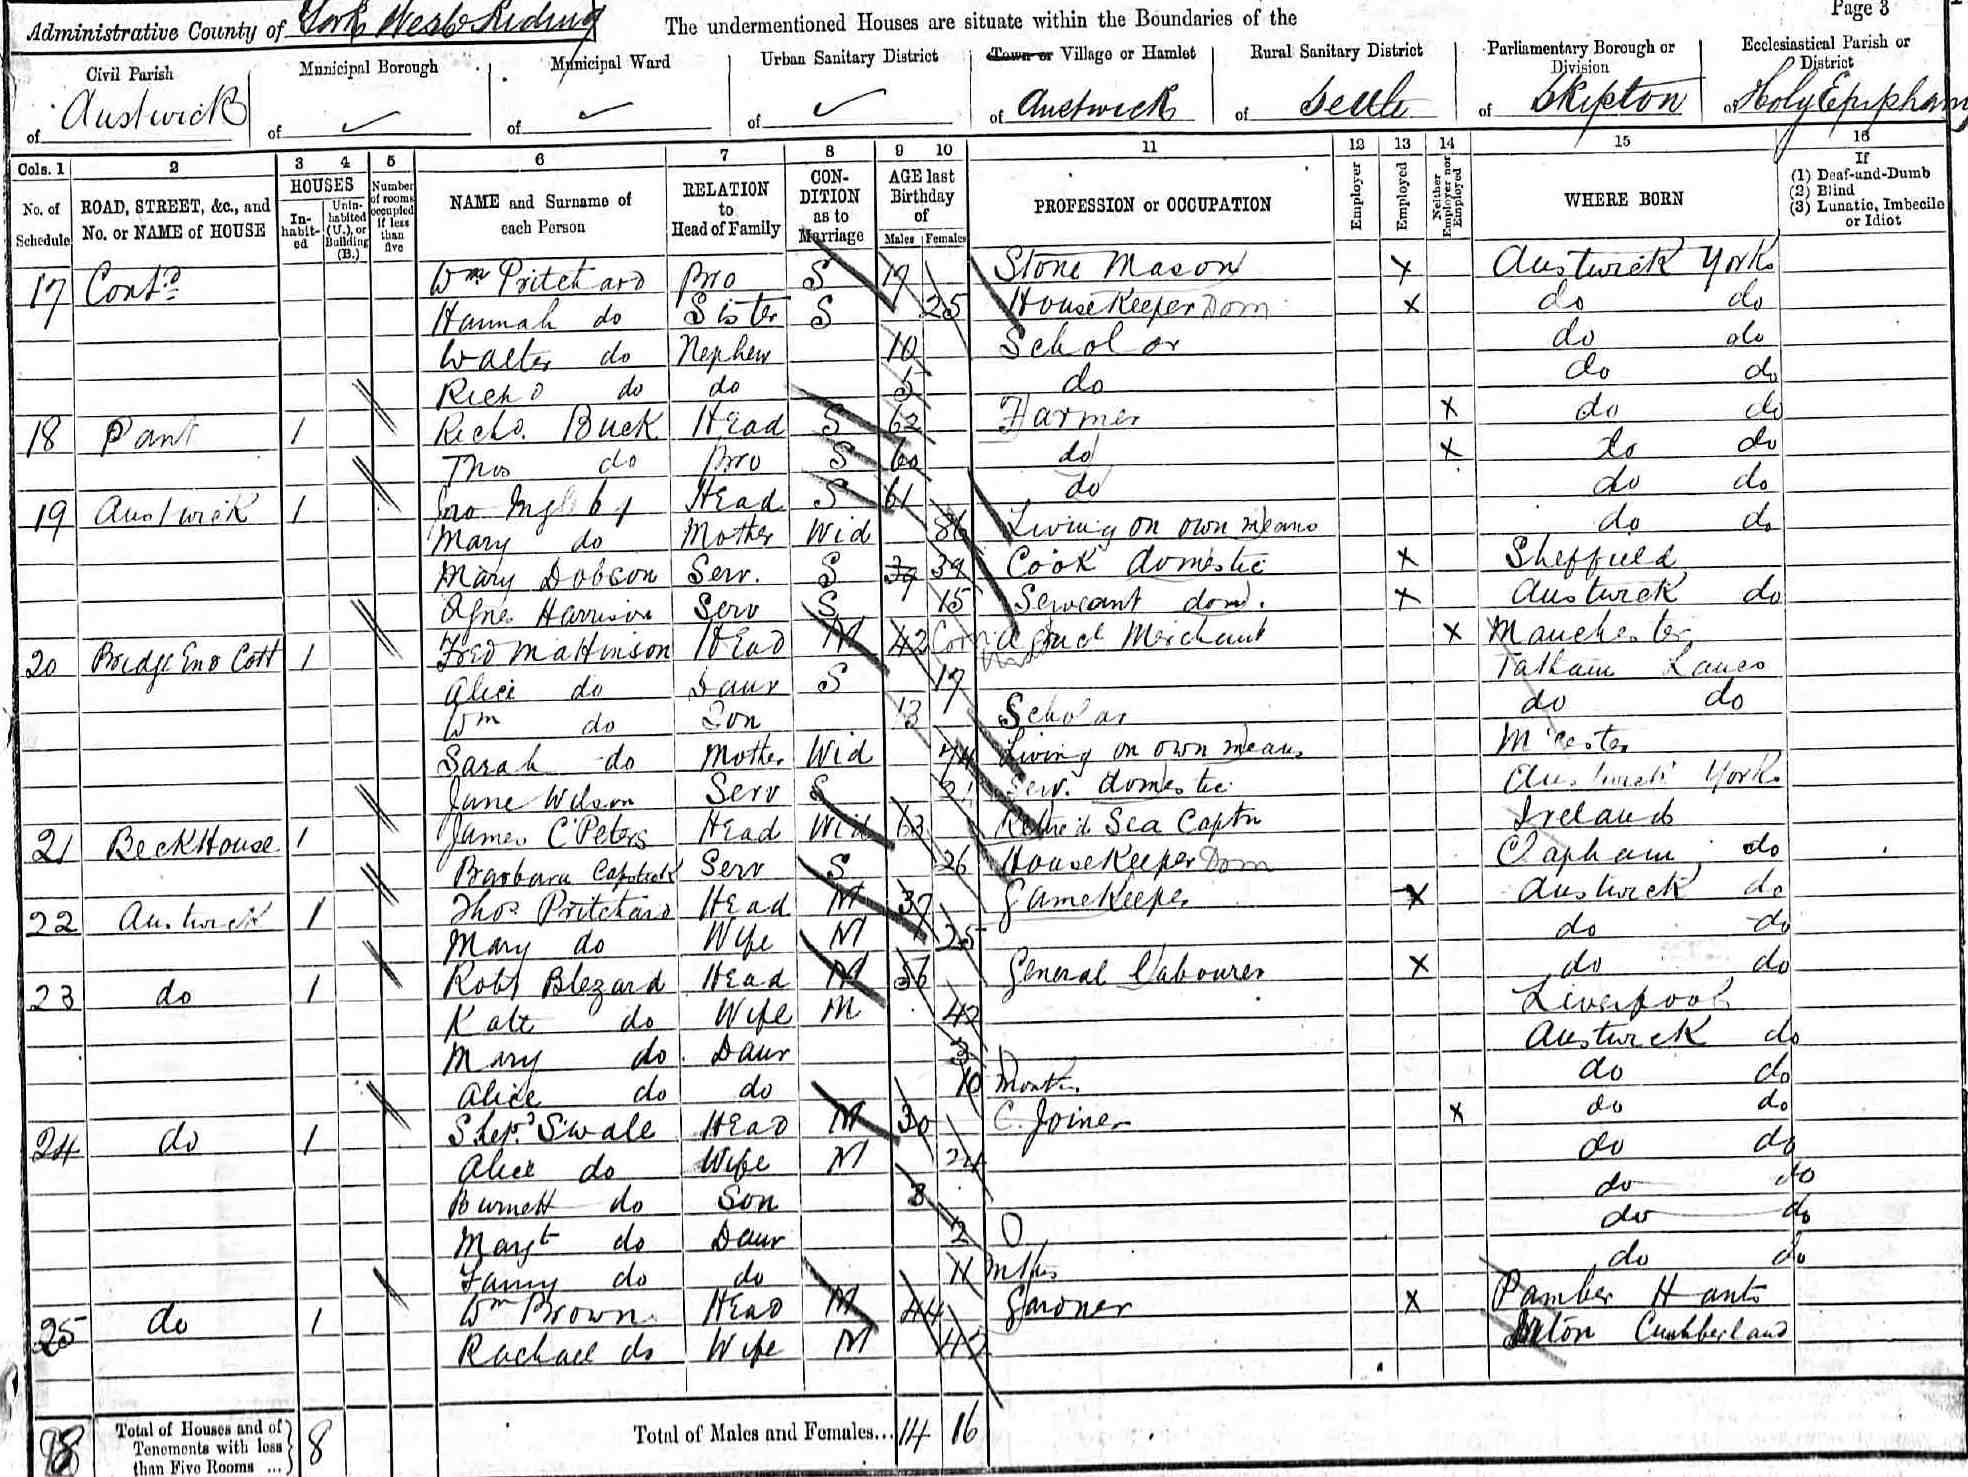 Page 3
Administrative County of York West Riding The undermentioned Houses are situate within the Boundaries of the
Civil Parish Municipal Borough Municipal Ward Urban Sanitary District Town or Village or Hamlet Rural Sanitary District Parliamentary Borough or Division Ecclesiastical Parish or District
of Austwick of of of of Austwick of Settle of Skipton of Holy Epiphany
Cols. 1 2 3 4 5 6 7 8 9 10 11 12 13 14 15 16
No. of Schedule ROAD, STREET, &c., and No. or NAME of HOUSE HOUSES Inhabited Uninhabited (U.), or Building (B.) Number of rooms occupied if less than five NAME and Surname of each Person RELATION to Head of Family CONDITION as to Marriage AGE last Birthday of Males Females PROFESSION or OCCUPATION Employer Employed Neither Employer nor Employed WHERE BORN If (1) Deaf-and-Dumb (2) Blind (3) Lunatic, Imbecile or Idiot
17 Contd Wm Pritchard Bro S 17 Stone Mason X Austwick Yorks
Hannah do Sister S 25 HouseKeeper Dom X do do
Walter do Nephew 10 Scholar do do
Richd do do 5 do do do
18 Pant 1 Richd. Buck Head S 62 Farmer X do do
Thos do Bro S 60 do X do do
19 Austwick 1 Jno Ingleby Head S 61 do do do
Mary do Mother Wid 86 Living on own means do do
Mary Dobson Serv. S 39 39 Cook domestic X Sheffield
Agnes Harrison Serv S 15 Servant dom. X Austwick do
20 Bridge End Cott 1 Fred Mattinson Head M 42 Merchant X Manchester
Alice do Daur S 17 Tatham Lancs
Wm do Son 13 Scholar do do
Sarah do Mother Wid 74 Living on own means M'cester
Jane Wilson Serv S Serv. domestic Austwick Yorks
21 Beck House 1 James C Peters Head Wid 63 Retired Sea Captn Ireland
Barbara Capstick Serv S 26 HouseKeeper Dom Clapham do
22 Austwick 1 Thos Pritchard Head M 37 GameKeeper X Austwick do
Mary do Wife M 25 do do
23 do 1 Robt Blezard Head M 56 General Labourer X do do
Kate do Wife M 42 Liverpool
Mary do Daur 3 Austwick do
Alice do do 10 Months do do
24 do 1 Shepd Swale Head M 30 C. Joiner X do do
Alice do Wife M 24 do do
Burnett do Son 3 do do
Margt do Daur 2 do do
Fanny do do 11 Mths do do
25 do 1 Wm Brown Head M 44 Gardner X Pamber Hants
Rachael do Wife M 42 Cumberland
8 Total of Houses and of Tenements with less than Five Rooms ... 8 Total of Males and Females... 14 16